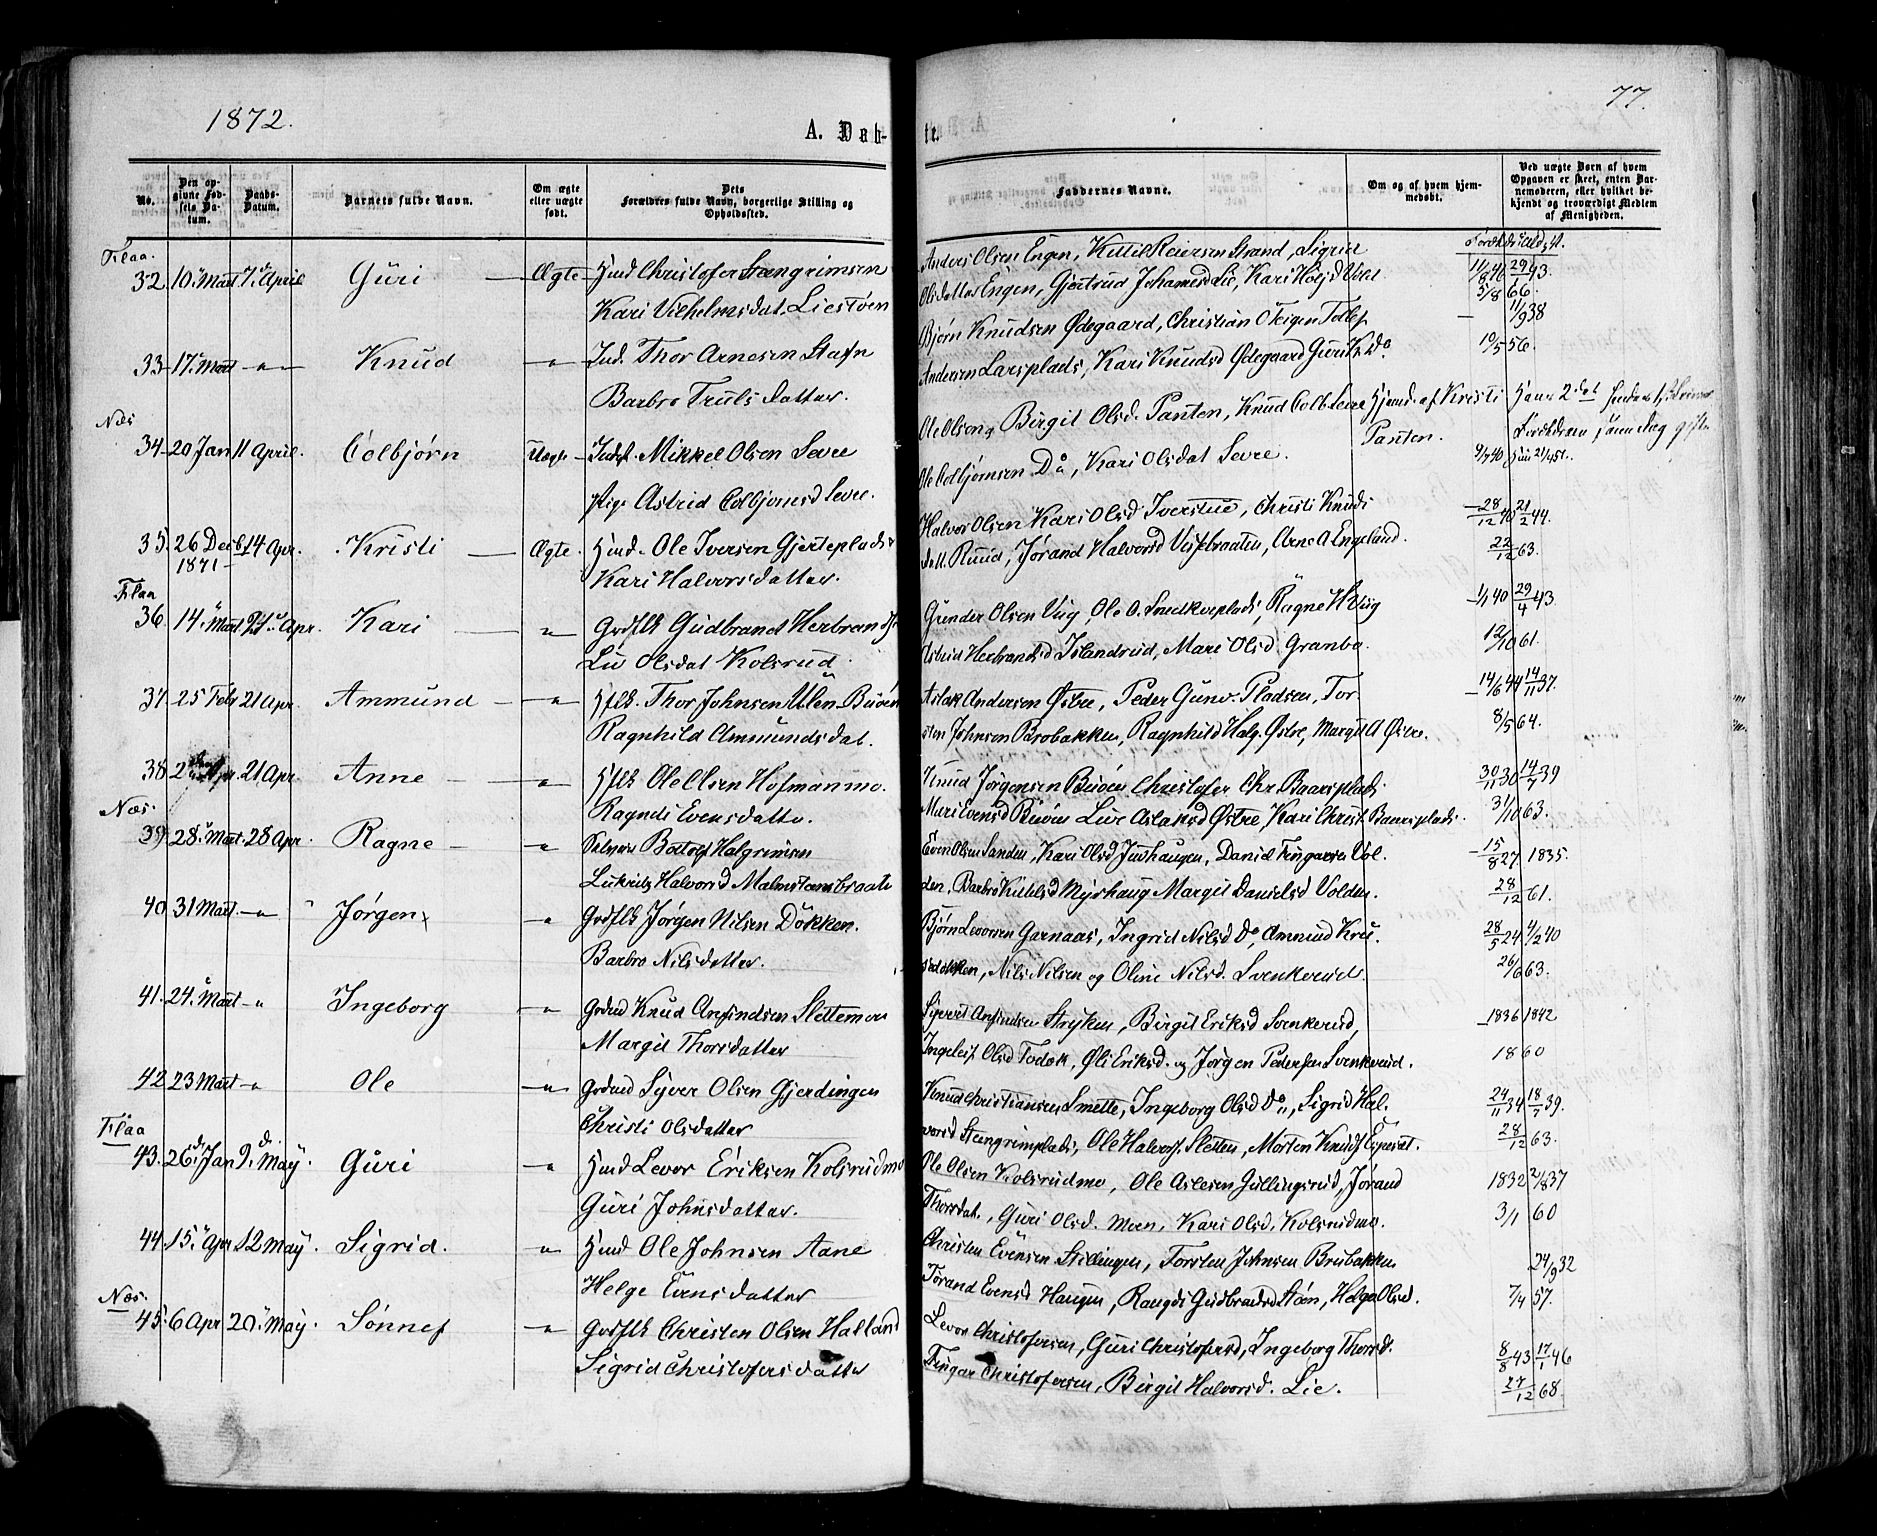 1872.
77.
A. Døb-
te.
No.
Den op-
givne Fød-
sels Da-
tum.
Daabs-
Datum.
Barnets fulde Navn.
Om ægte
eller uægte
født.
Dets
Forældres fulde Navn, borgerlige Stilling og
Opholdssted.
Faddernes Navne.
Om og af hvem hjem-
medøbt.
Ved uægte Barn af hvem
Opgaven er skeet, enten Bar-
nemoderen, eller hvilket be-
kjendt og troværdigt Medlem
af Menigheden.
Flaa.
32 10. Mart 7. April Guri — Ægte Hmd Christofer Stengrimsen
Kari Vilhelmsdat. Liestøen
Anders Olsen Engen, Kittil Reiersen Strand, Sigrid
Olsdatter Engen, Gjertrud Johannesd Lie, Kari
11/8 46 29/4 43.
5/8 66.
33 17. Mart — " — Knud — " — Ind. Thor Arnesen
Barbro Trulsdatter.
Bjørn Knudsen Ødegaard, Christian
Andersen Larsplads, Kari Knudsd Ødegaard Guri K. Do
— 11/9 38
10/5 56.
Næs
34 20 Jan 11 April. Colbjørn Uægte Indst. Mikkel Olsen Sevre
Pige Astrid Colbjørnsd Sevre.
Ole Olsen og Birgit Olsd. Panten, Knud Colb. Sevre
Ole Colbjørnsen Då, Kari Olsdat Sevre.
Hjemd. af Kristi
Panten.
Hans 2det hendes 1st
Forældrene
9/7 40
35. 26 Decb. 14 Apr. Kristi — Ægte. Hmd. Ole Iversen Gjerteplads
1871 —
Kari Halvorsdatter.
Halvor Olsen Kari Olsd Iverstue, Christi Knuds
datt. Ruud, Jørand Halvorsd Veslebraaten, Arne A Engeland.
28/12 40 21/2 44.
22/12 63.
Flaa
36. 14. Mart 21. Apr. Kari — " Grdflk Gudbrand Herbrands.
Liv Olsdat Kolsrud.
Gunder Olsen Vug, Ole O. Snedkerplads, Ragne H Vug
Astrid Herbrandsd Islandrud, Mari Olsd. Granbo.
1/1 40 29/4 43.
12/10 61.
37. 25 Febr 21 Apr. Ammund — " — Hflk. Thor Johnsen Ulen Buøen
Ragnhild Ammundsdat.
Aslak Andersen Østre, Peder Gunv. Pladsen, Tor
sten Johnsen Brobakken, Ragnhild Halg. Østre, Margit A Østre.
14/6 44 14/11 37.
8/5 64.
38 2. Apr. 21 Apr. Anne — " Hflk Ole Olsen Hofmanmo.
Ragndi Evensdatter.
Knud Jørgensen Buøen Christofer Chr. Baarsplads.
Mari Evensd Buøen Live Aslaksd Østre, Kari Christ. Baarsplads.
30/11 30 14/7 39
31/10 63.
Næs.
39 28. Mart. 28 Apr. Ragne — " Selveier Bottolf Halgrimsen
Lukrits Halvorsd Malmstensbraate
Even Olsen Sanden, Kari Olsd Juvhaugen, Daniel Fingarsen Vol.
den, Barbro Kittilsd Myrhaug Margit Danielsd Volden.
15/8 27 1835.
28/12 61.
40 31 Mart. — " Jørgen " Grdflk Jørgen Nilsen Dokken.
Barbro Nilsdatter.
Bjørn Levorsen Garnaas, Ingrid Nilsd Do, Ammund Kru.
sedokken, Nils Nilsen og Oline Nilsd. Svenkerud.
28/5 24 4/2 40
26/6 63.
41. 24. Mart — " Ingeborg — " — Grdmd Knud Arnfindsen Slettemoen
Margit Thorsdatter
Syver Arnfindsen Stryken, Birgit Eriksd Svenkerud,
Ingeleif Olsd Todok, Øli Eriksd. og Jørgen Pedersen Svenkerud.
1836 1842
1860
42 23 Mart — " Ole — " — Grdmd Syver Olsen Gjerdingen
Christi Olsdatter
Knud Christiansen Smette, Ingeborg Olsd Do, Sigrid Hal.
vorsd Stengrimplads, Ole Halvors. Sletten, Morten Knuds Espeset.
24/11 34 18/7 39.
28/12 63.
Flaa
43. 26. Jan 9. May. Guri " Hmd Levor Eriksen Kolsrudmo
Guri Johnsdatter.
Ole Olsen Kolsrudmo, Ole Aslesen Gullingsrud, Jørand
Thorsdat., Guri Olsd. Moen, Kari Olsd. Kolsrudmo.
1832 2/8 37
3/1 60
44. 15. Apr 12 May. Sigrid. " Hmd Ole Johnsen Aane
Helge Evensdatter
Christen Evensen Stillingen, Torsten Johnsen Brubakken
Jørand Evensd Haugen, Rangdi Gudbrandsd Støen, Helga Olsd.
24/9 32
7/4 57.
Næs.
45. 6 Apr 20. May. Sønnef " Grdflk Christen Olsen Halland
Sigrid Christofersdatter
Levor Christofersen, Guri Christofersd, Ingeborg Thorsd.
Fingar Christofersen, Birgit Halvorsd. Lie.
8/8 43 17/1 46
27/12 68.